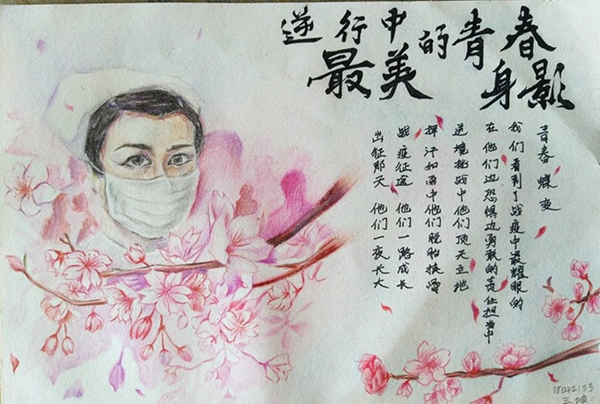 逆行中
最美的青春
身影
青春蝶变
我们看到了战疫中最耀眼的
在他们边恐惧边勇敢的责任担当中
逆境挑战中他们顶天立地
挥汗如雨中他们脱胎换骨
战疫征途 他们一路成长
出征那天 他们一夜长大